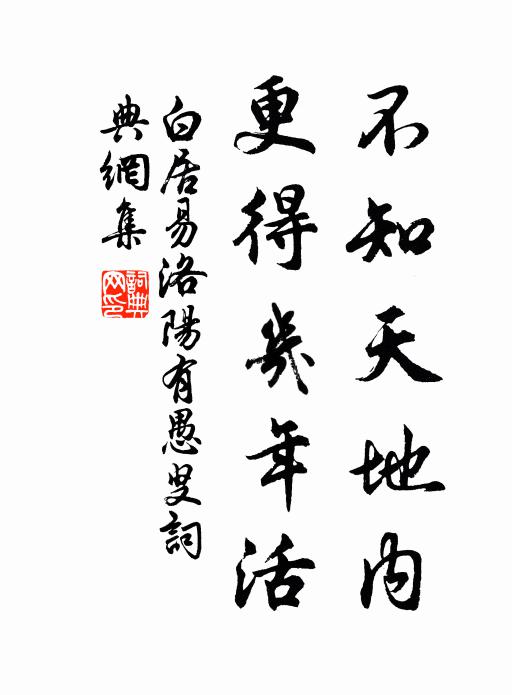 不知天地内
更得幾年活
白居易洛陽有愚叟詞
典網集
詞典網印